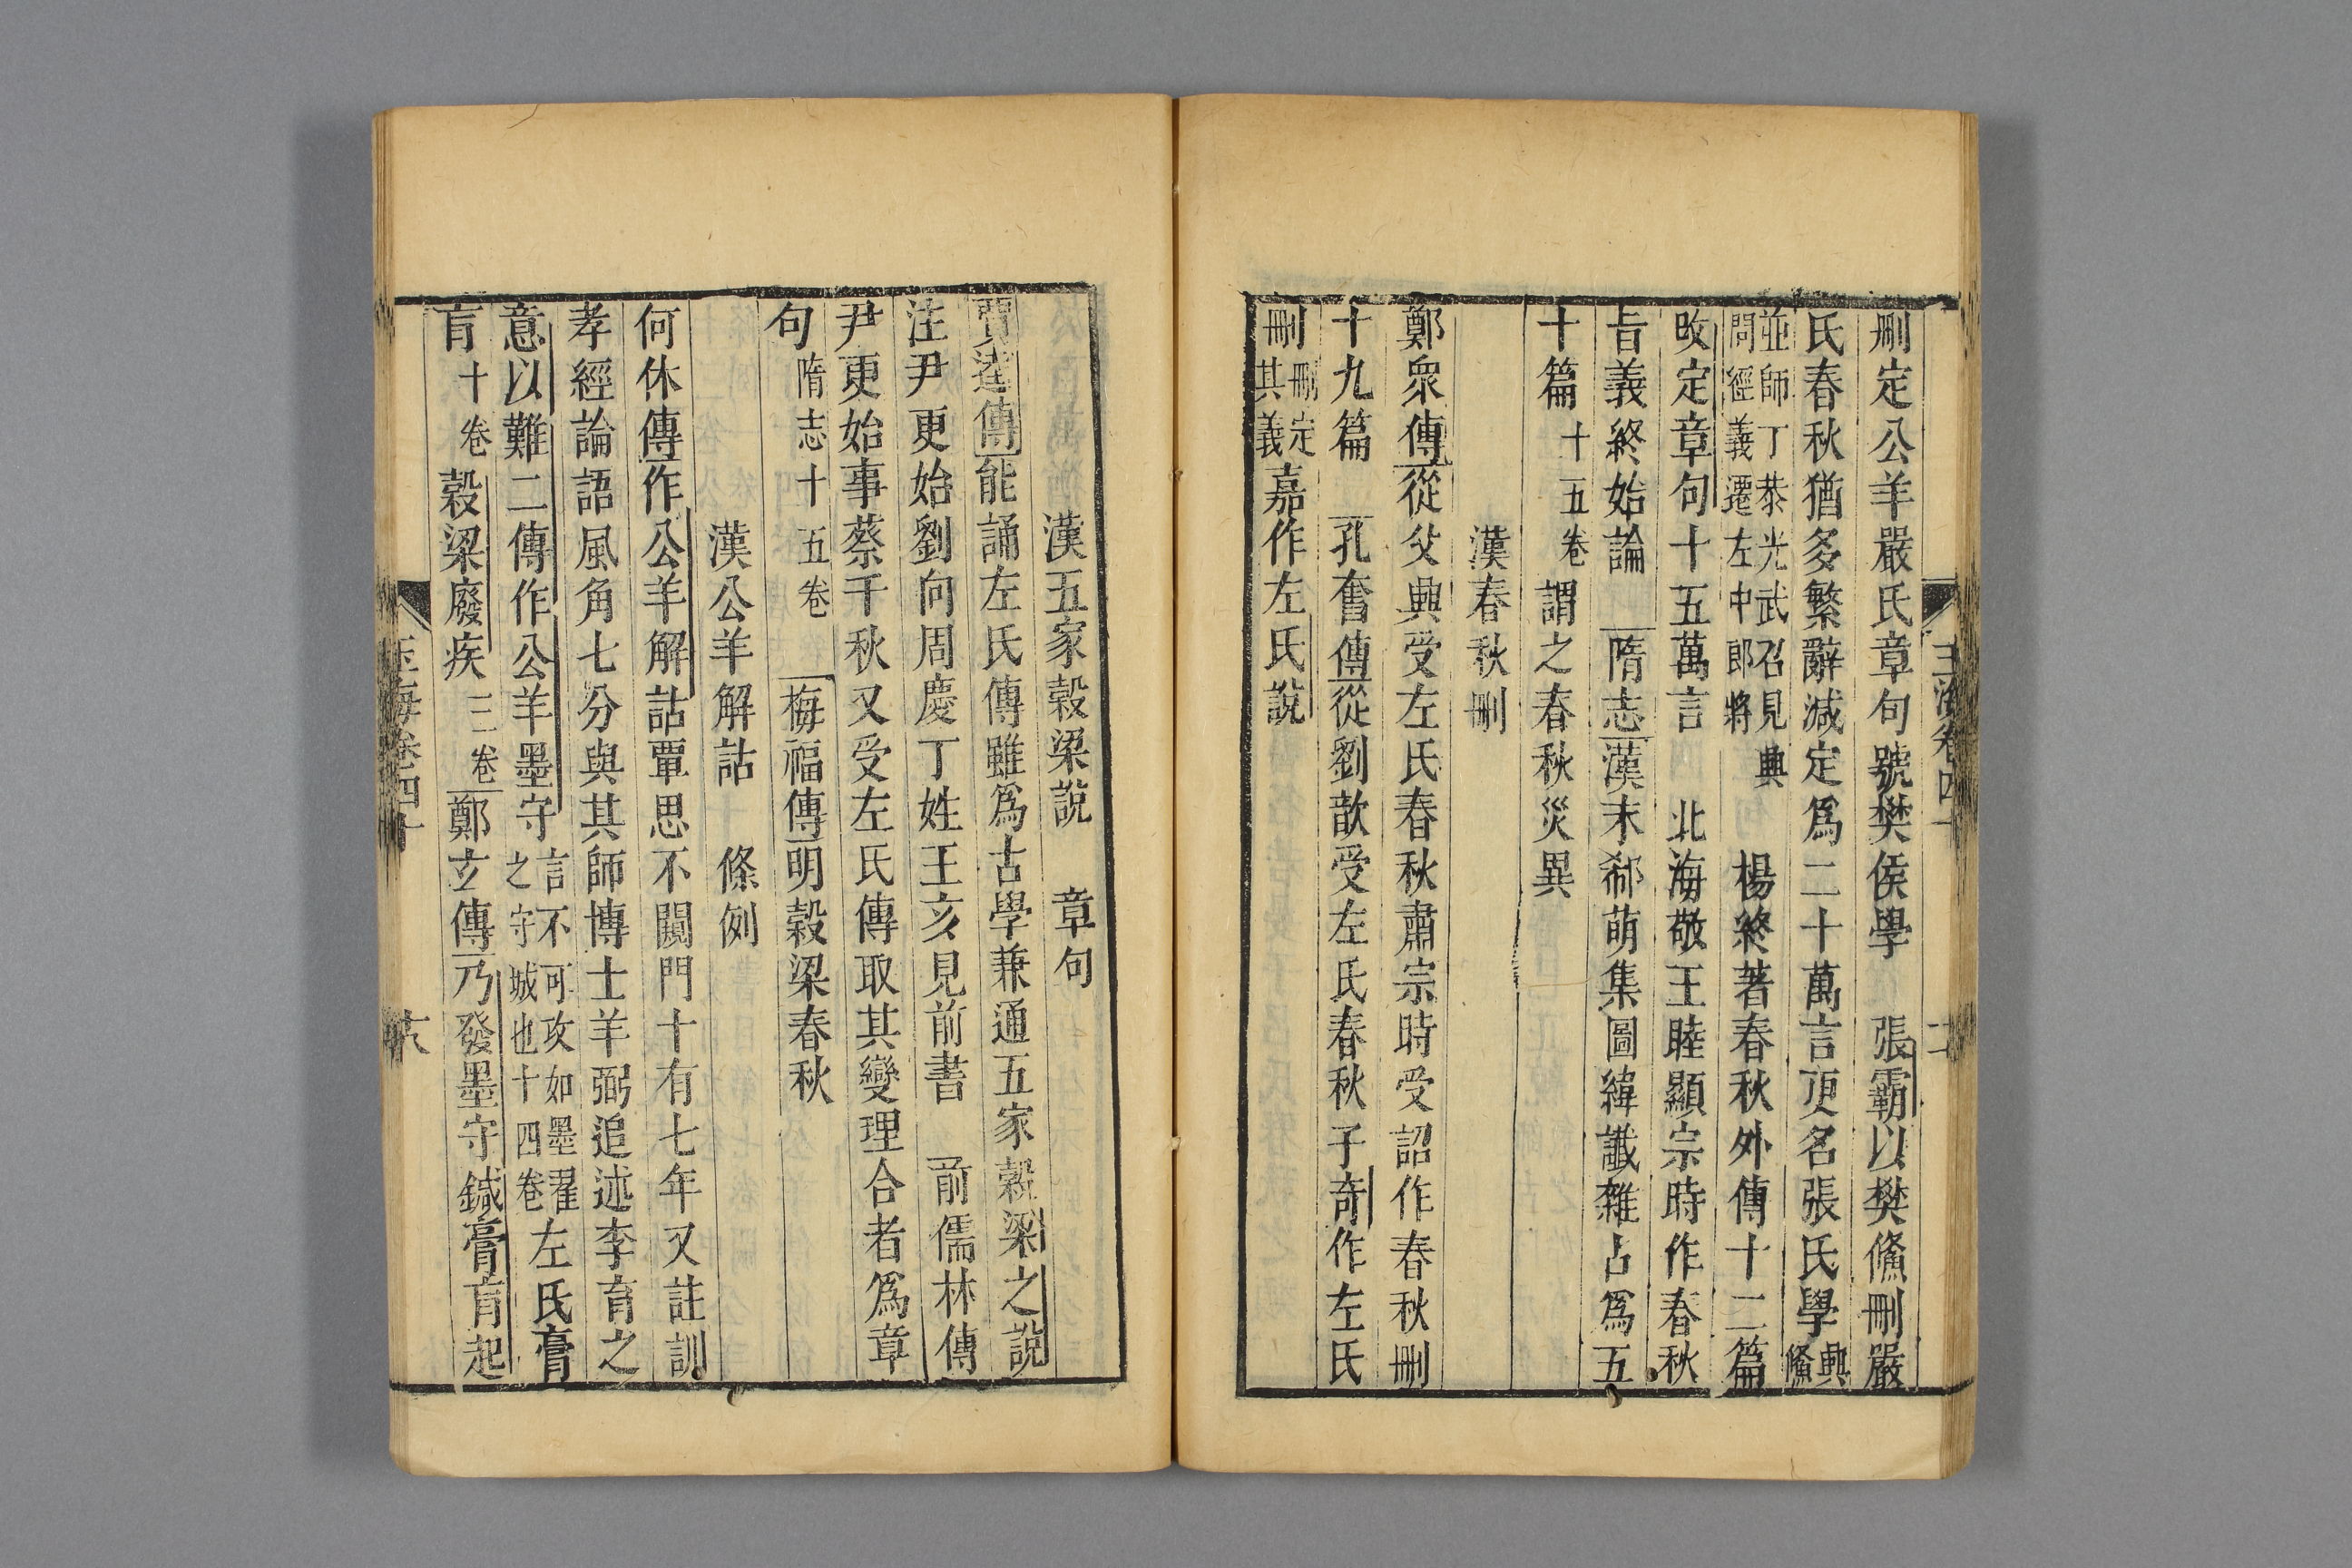 刪定公羊嚴氏章句號樊侯學　張霸以樊鯈刪嚴
氏春秋猶多繁辭減定爲二十萬言更名張氏學興鯈
並師丁恭光武召見興問徑義遷左中郎將　楊終著春秋外傳十二篇
改定章句十五萬言　北海敬王睦顯宗時作春秋
旨義終始論　隋志漢末郗萌集圖緯讖雜占爲五
十篇十五卷謂之春秋災異
漢春秋刪
鄭衆傳從父興受左氏春秋肅宗時受詔作春秋刪
十九篇　孔奮傳從劉歆受左氏春秋子奇作左氏
刪刪定其義嘉作左氏說
漢五家穀梁說　章句
賈逵傳能誦左氏傳雖爲古學兼通五家穀梁之說
注尹更始劉向周慶丁姓王亥見前書　前儒林傳
尹更始事蔡千秋又受左氏傳取其變理合者爲章
句隋志十五卷　梅福傳明穀梁春秋
漢公羊解詁　條例
何休傳作公羊解詁覃思不闚門十有七年又註訓
孝經論語風角七分與其師博士羊弼追述李育之
意以難二傳作公羊墨守言不可攻如墨翟之守城也十四卷左氏膏
肓十卷穀梁廢疾三卷鄭玄傳乃發墨守鍼膏肓起
玉海卷四十
六